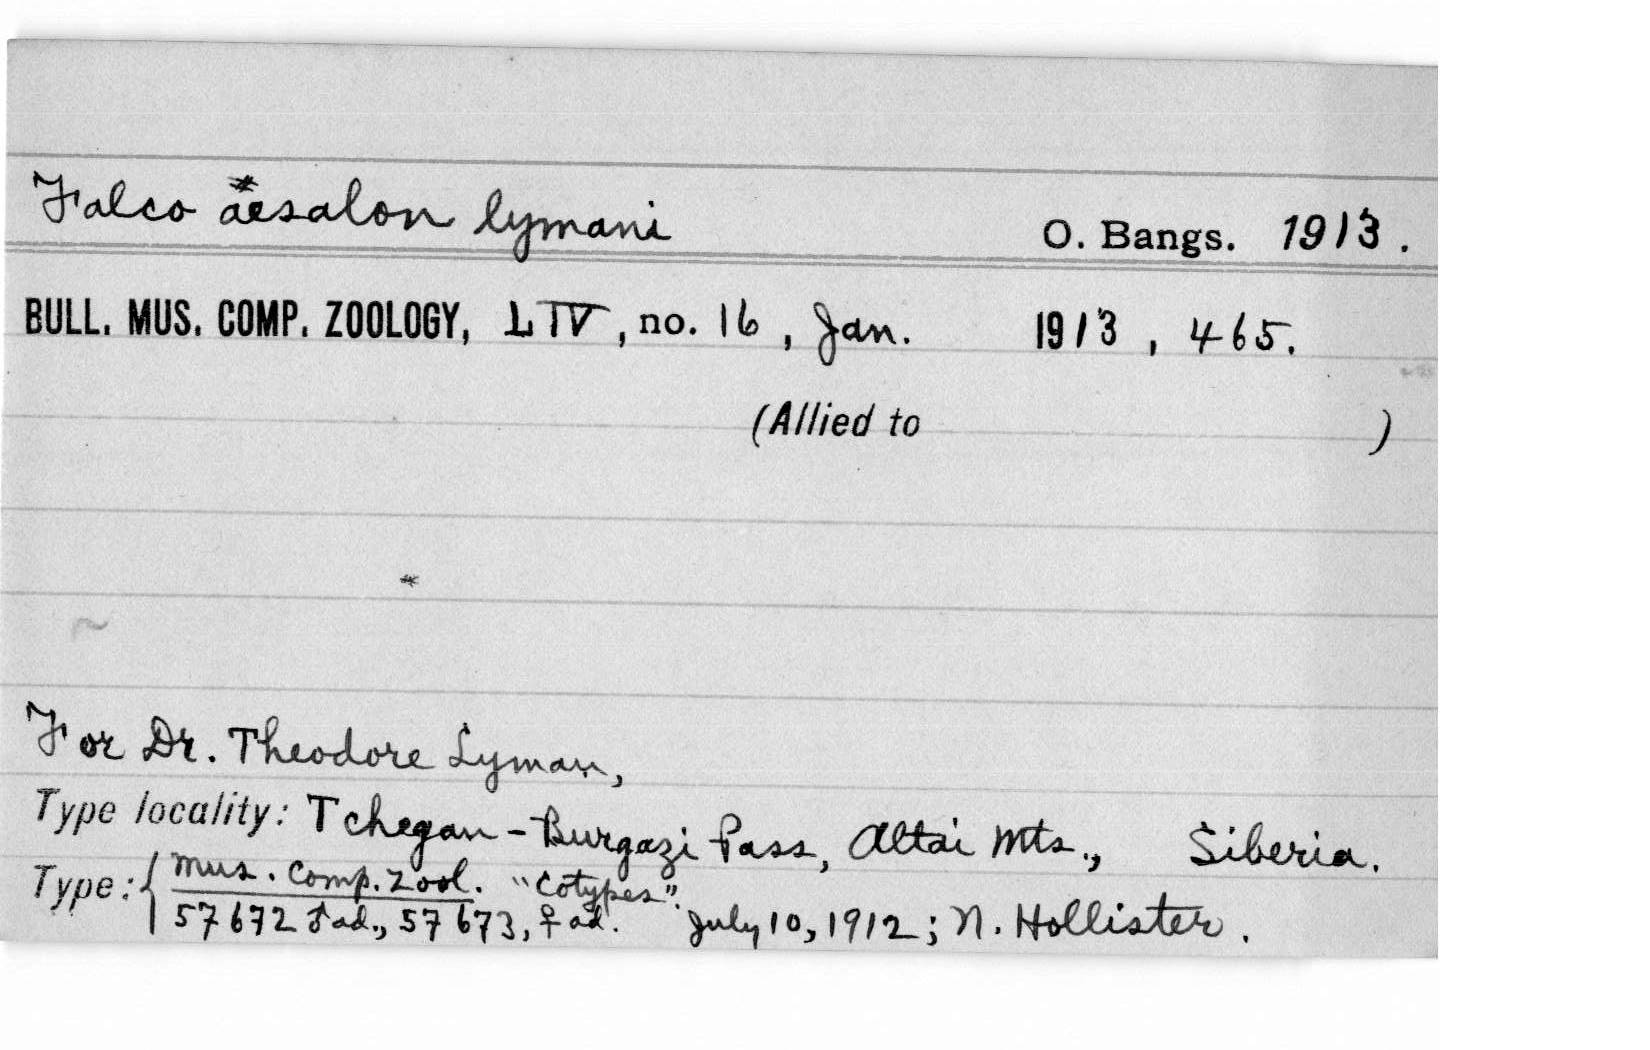 Falco aesalon lymani O. Bangs. 1913.
BULL. MUS. COMP. ZOOLOGY, LIV, no. 16, Jan. 1913, 465.
(Allied to )
*
For Dr. Theodore Lyman,
Type locality: Tchegan-Burgazi Pass, Altai Mts., Siberia.
Type: { Mus. Comp. Zool. "Cotypes".
57672 ♂ ad., 57673, ♀ ad. July 10, 1912; N. Hollister.